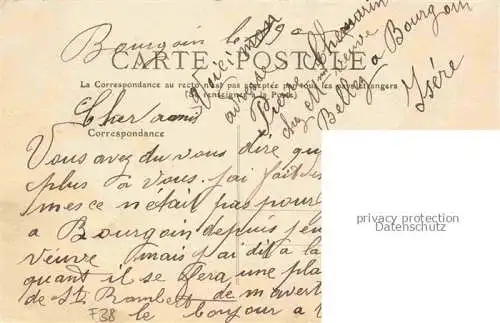 Bourgoin le
Voici mon
adresse
Pierre Chemarin
chez Mme veuve
Bellez a Bourgoin
Isère
CARTE POSTALE
La Correspondance au recto n'est pas acceptée par tous les pays étrangers
(Se renseigner à la Poste)
Cher ami
Correspondance
Vous avez du vous dire que
plus à vous. j'ai fait
mes ce n'était pas pour
a Bourgoin depuis
veuve mais j'ai dit a la
quant il se fera une pla
de St Rambert de m'avert
le bonjour a
F38
privacy protection
Datenschutz